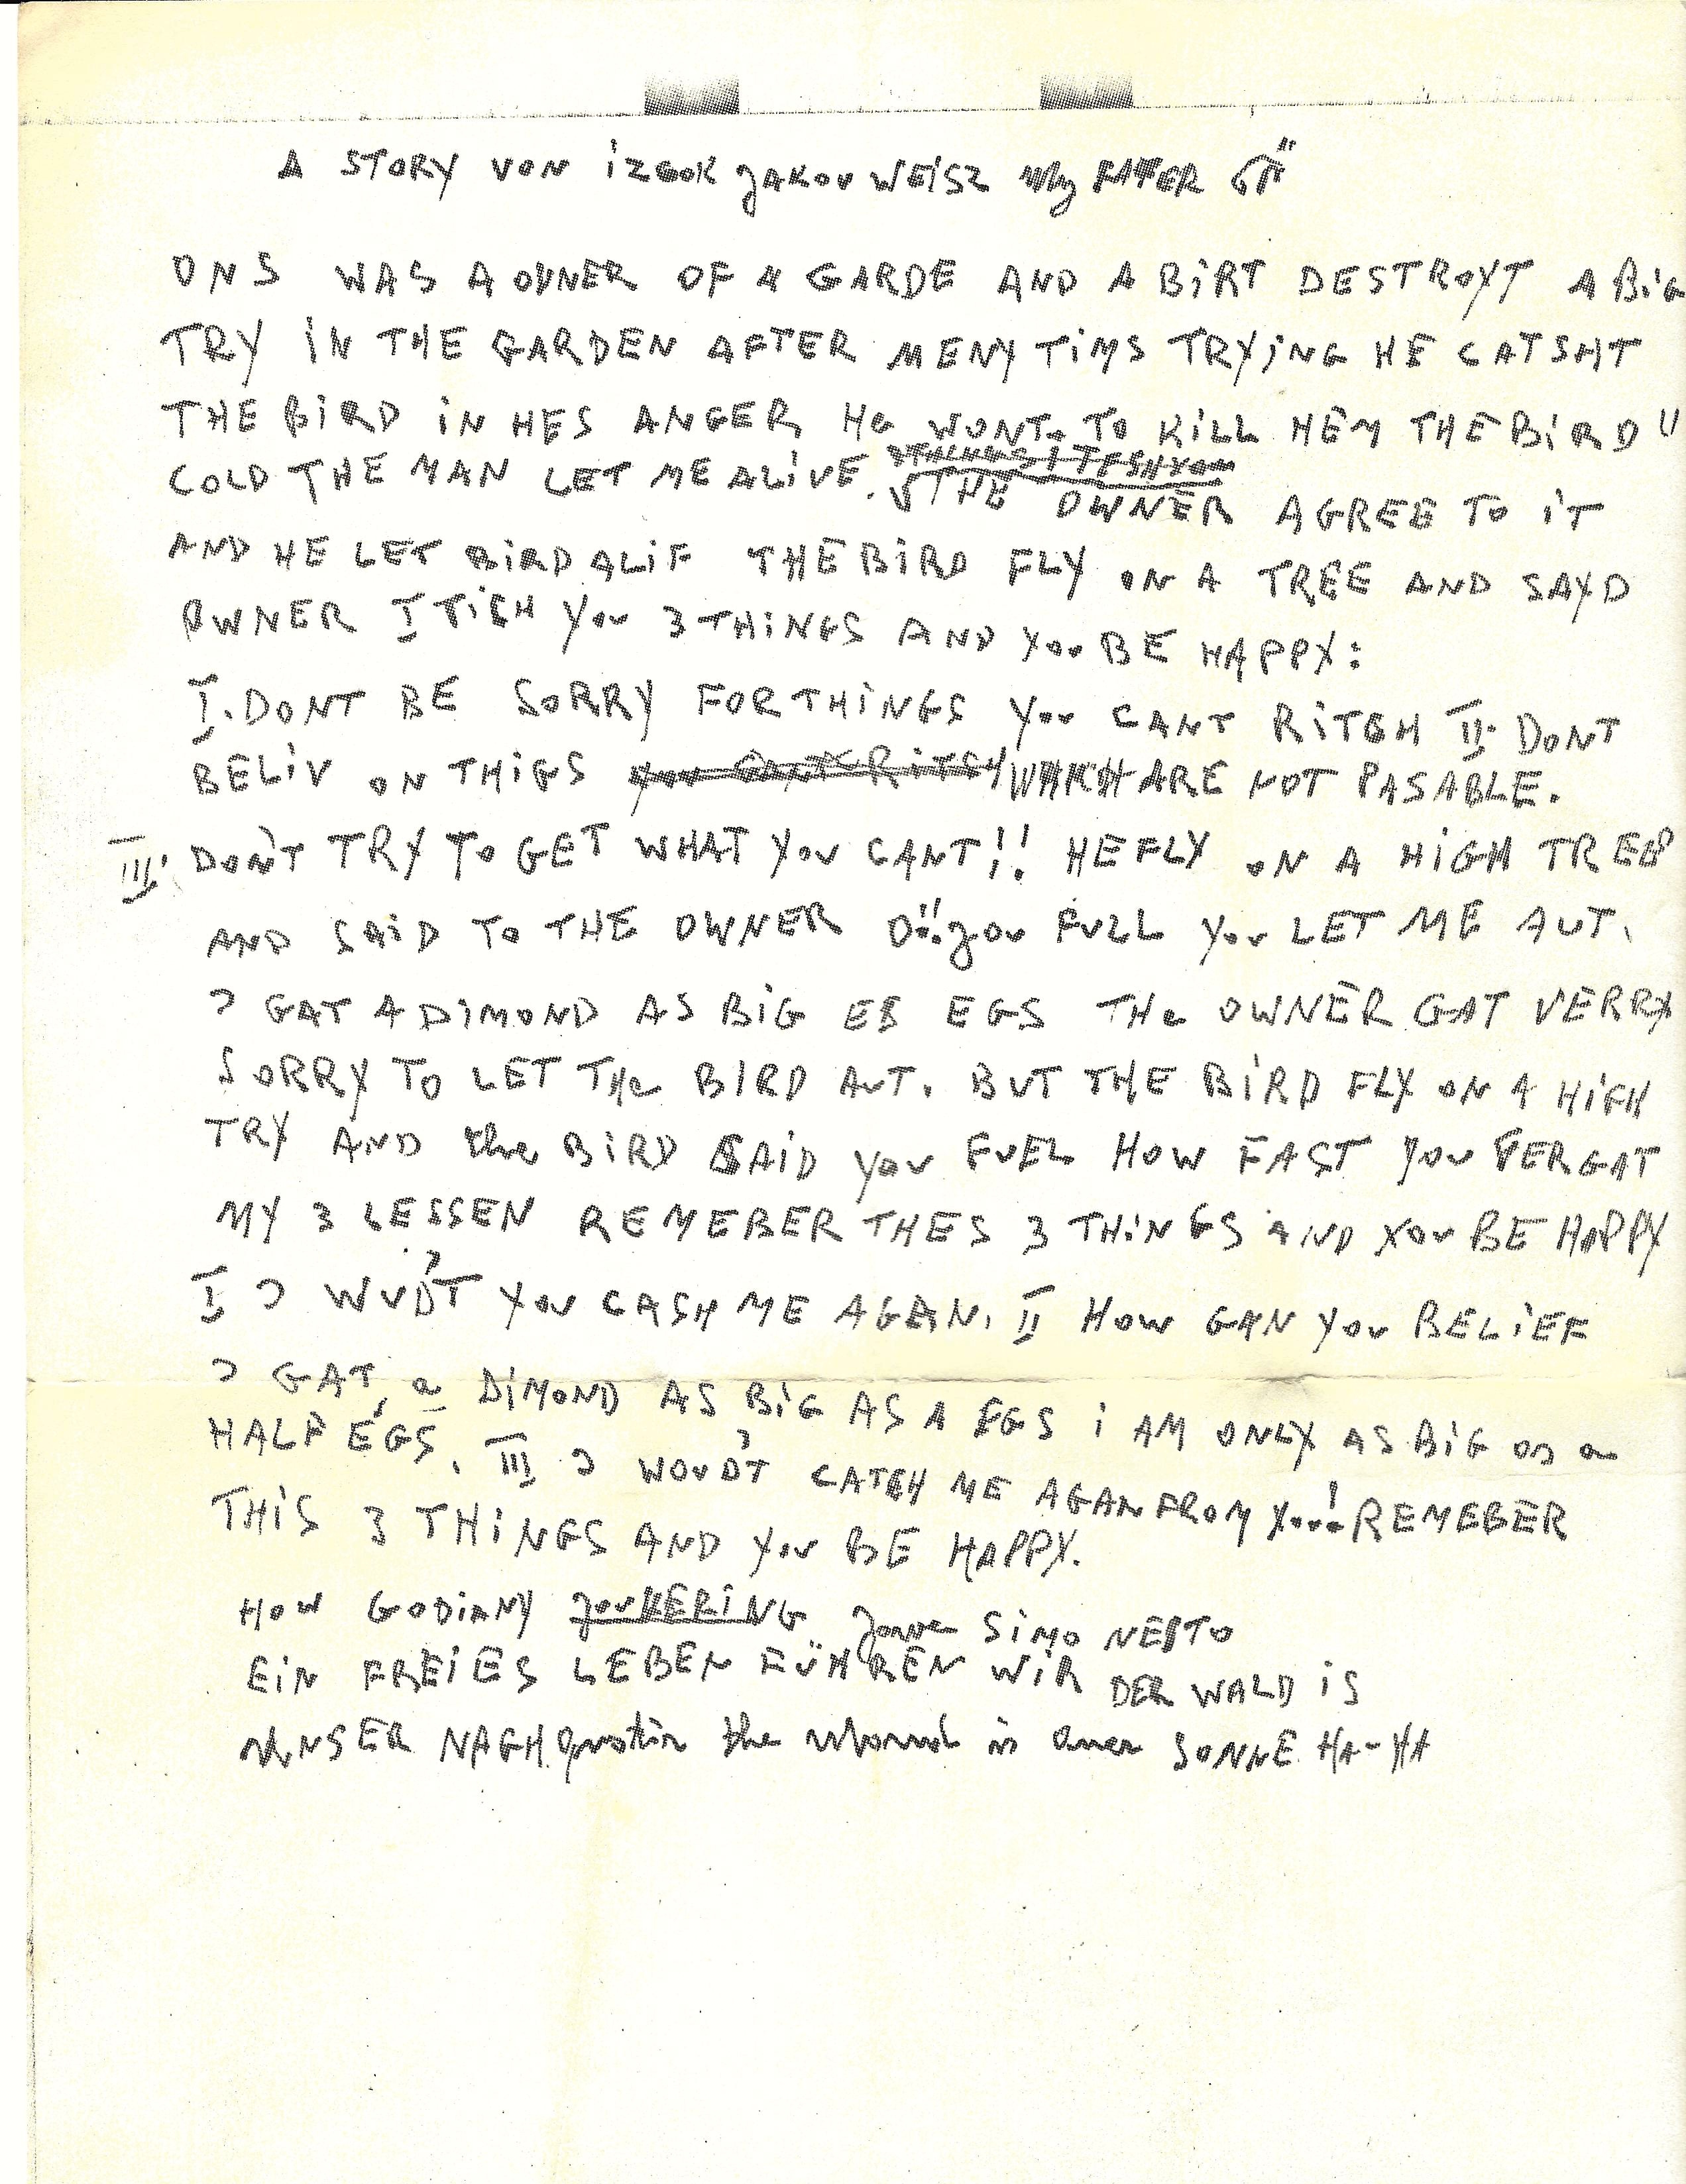 A STORY VON iZGOK JAKOV WEiSZ My FATER
ONS WAS A OVNER OF A GARDE AND A BiRT DESTROYT A BiG
TRY iN THE GARDEN AFTER MENY TiMS TRYiNG HE CATSHT
THE BiRD iN HES ANGER He WONT TO KiLL HEM THE BiRD
COLD THE MAN LET ME ALiVE. THE OWNER AGREE TO iT
AND HE LET BiRD ALiF THE BiRD FLY ON A TREE AND SAYD
OWNER I TiSH You 3 THiNGS AND You BE HAPPY:
I. DONT BE SORRY FOR THiNGS You CANT RiTSH II. DONT
BELiV ON THiGS you CANT RiTSH WHICH ARE NOT PASABLE.
III. DON'T TRY TO GET WHAT YOU CANT!! HE FLY ON A HiGH TREE
AND SAiD TO THE OWNER O you FULL You LET ME AUT.
I GAT A DiMOND AS BiG ES EGS THe OWNER GAT VERRY
SORRY TO LET THe BIRD AUT. BUT THE BiRD FLY ON A HiGH
TRY AND the BiRD SAiD you FUEL HOW FAST You VERGAT
MY 3 LESSEN REMEBER THES 3 THiNGS AND You BE HAPPY
I I WUD'T You CASH ME AGAN. II HOW GAN You BELiEF
I GAT a DiMOND AS BiG AS A EGS i AM ONLY AS BiG as a
HALF EGS. III I WOUD'T CATCH ME AGAN FROM You! REMEBER
THiS 3 THiNGS AND You BE HAPPY.
HOW GODiANY youKERiNG SiMO NESTO
EiN FREiES LEBEN FÜHREN WiR DER WALD iS
UNSER NAGH the in SONNE HA-HA